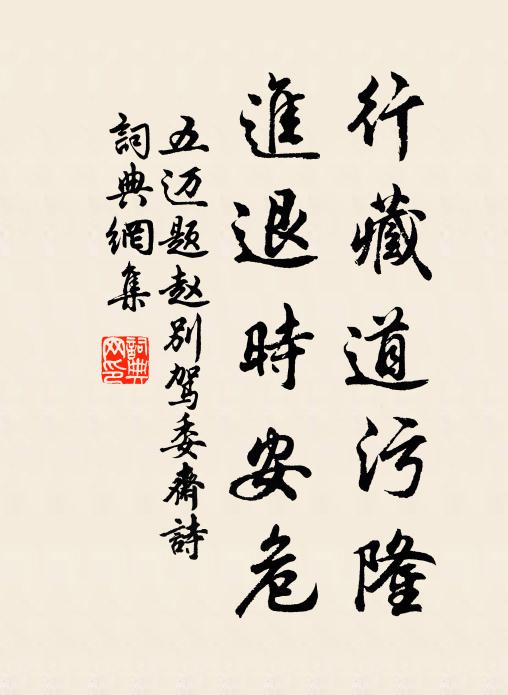 行藏道污隆
進退時安危
五迈题赵别駕委齋詩
詞典網集
詞典網印